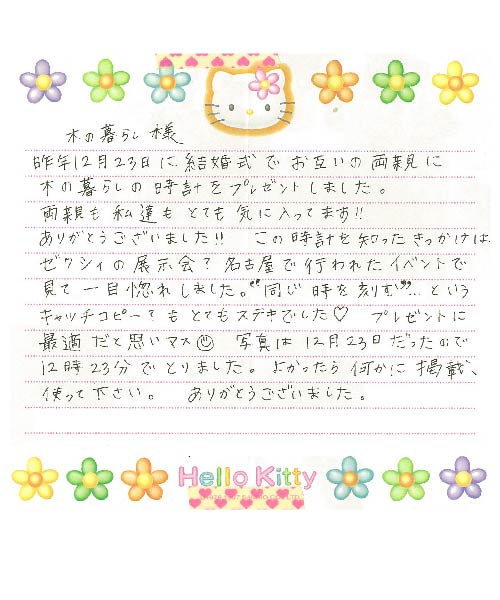 木の暮らし 様
昨年12月23日に結婚式でお互いの両親に
木の暮らしの時計をプレゼントしました。
両親も私達もとても気に入ってます!!
ありがとうございました!! この時計を知ったきっかけは
ゼクシィの展示会?名古屋で行われたイベントで
見て一目惚れしました。"同じ時を刻む"… という
キャッチコピーもとてもステキでした♡ プレゼントに
最適だと思いマス☺ 写真は12月23日だったので
12時23分でとりました。よかったら何かに掲載、
使って下さい。 ありがとうございました。
Hello Kitty